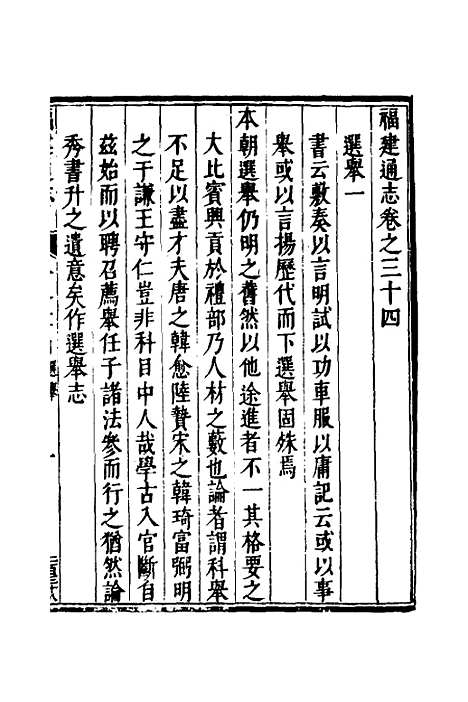 福建通志卷之三十四
選舉一
書云敷奏以言明試以功車服以庸記云或以事
舉或以言揚歷代而下選舉固殊焉
本朝選舉仍明之舊然以他途進者不一其格要之
大比賓興貢於禮部乃人材之藪也論者謂科舉
不足以盡才夫唐之韓愈陸贄宋之韓琦富弼明
之于謙王守仁豈非科目中人哉學古入官斷自
茲始而以聘召薦舉任子諸法參而行之猶然論
秀書升之遺意矣作選舉志